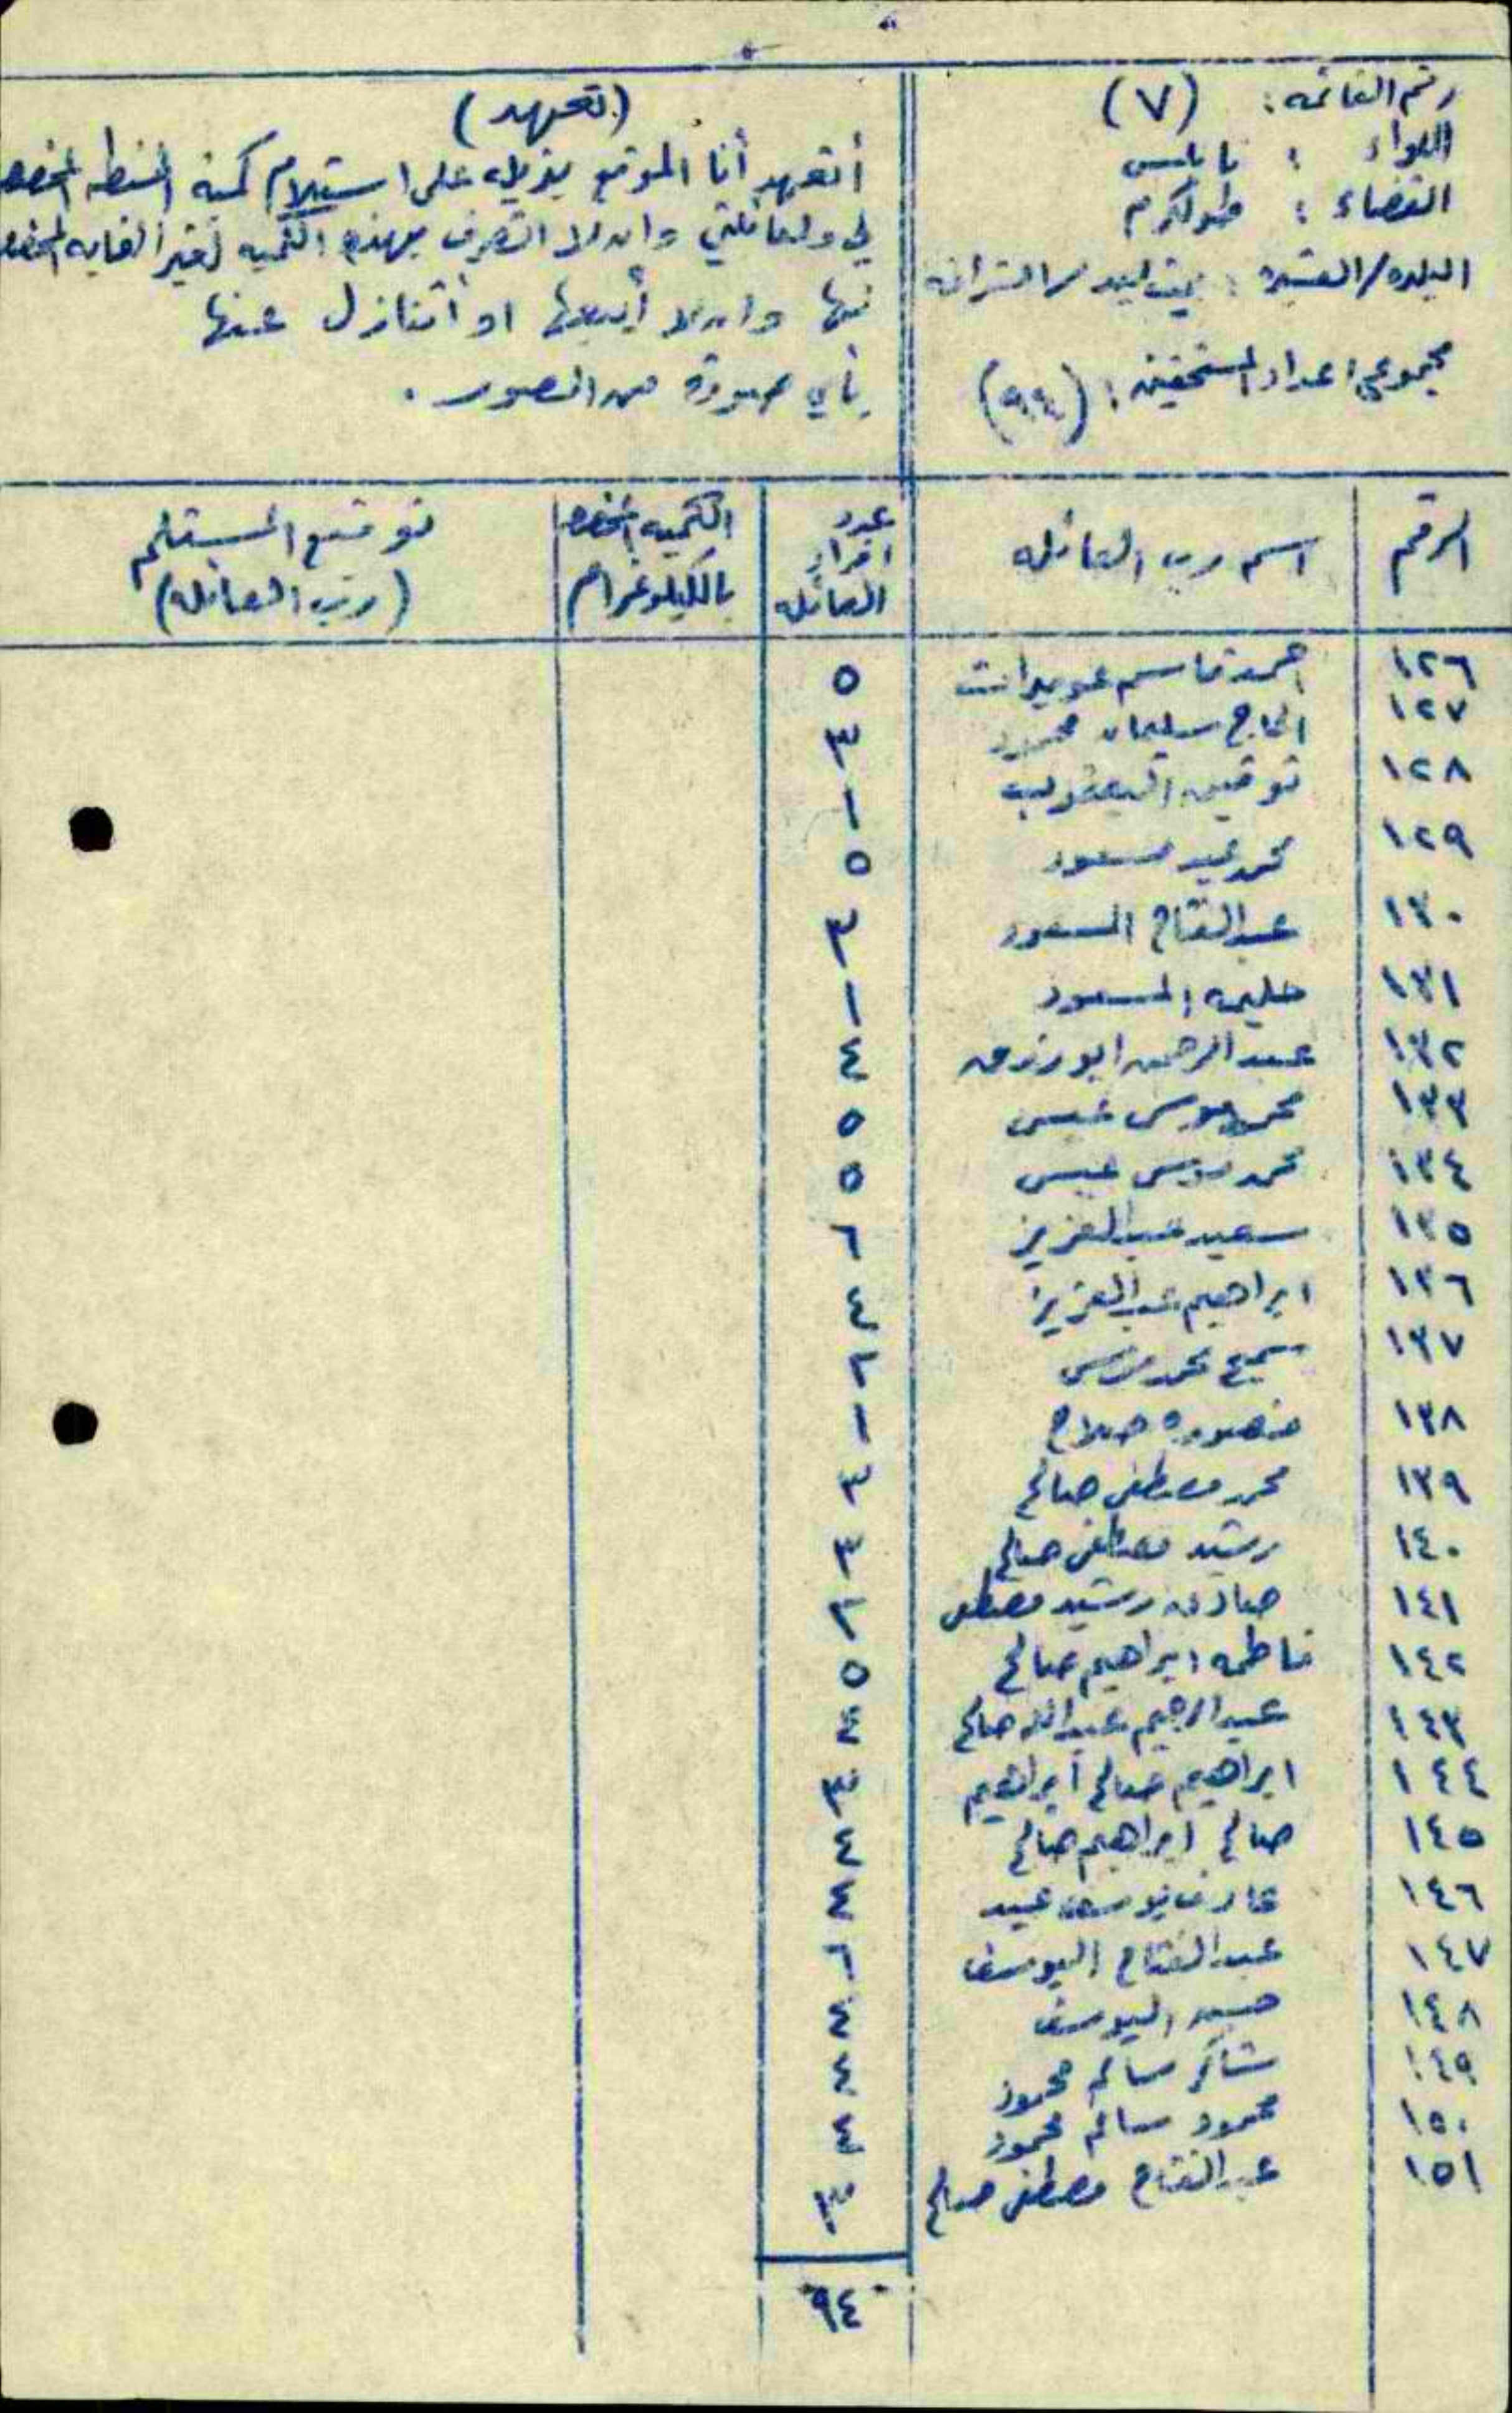 رقم القائمة : (٧)
اللواء : نابلس
القضاء : طولكرم
البلده/العشيرة : بيت ليد /
مجموع اعداد المستحقين : (٩٤)
(تعهد)
أتعهد أنا الموقع بذيله على استلام كمية الحنطه المخصصه
لي ولعائلتي وان لا اتصرف بهذه الكميه لغير الغايه المخصصه
وان لا أبيعها او أتنازل عنها
بأي صورة من الصور .
الرقم
اسم رب العائله
عدد افراد العائله
الكميه المخصصه بالكيلوغرام
توقيع المستلم (رب العائله)
١٢٦ احمد قاسم عويدات ٥
١٢٧ الحاج سليمان محمود ٣
١٢٨ توفيق اليعقوب ١
١٢٩ محمد عبد مسعود ٥
١٣٠ عبد الفتاح المسعود ٣
١٣١ المسعود ١
١٣٢ عبد الرحمن ابو رزق ٤
١٣٣ موسى عيسى ٥
١٣٤ محمد موسى عيسى ٥
١٣٥ سعيد عبد العزيز ٦
١٣٦ ابراهيم عبد العزيز ٤
١٣٧ سميح محمد موسى ٢
١٣٨ منصوره صلاح ١
١٣٩ محمد مصطفى صالح ٣
١٤٠ رشيد مصطفى صالح ٣
١٤١ صادق رشيد مصطفى ٢
١٤٢ فاطمه ابراهيم صالح ٥
١٤٣ عبد الرحيم عبد الله صالح ٤
١٤٤ ابراهيم صالح ابراهيم ٣
١٤٥ صالح ابراهيم صالح ٤
١٤٦ عارف يوسف عبيد ٤
١٤٧ عبد الفتاح اليوسف ٦
١٤٨ حسن اليوسف ٤
١٤٩ شاكر سالم محمود ٤
١٥٠ محمود سالم محمود ٤
١٥١ عبد الفتاح مصطفى صالح ٣
٩٤